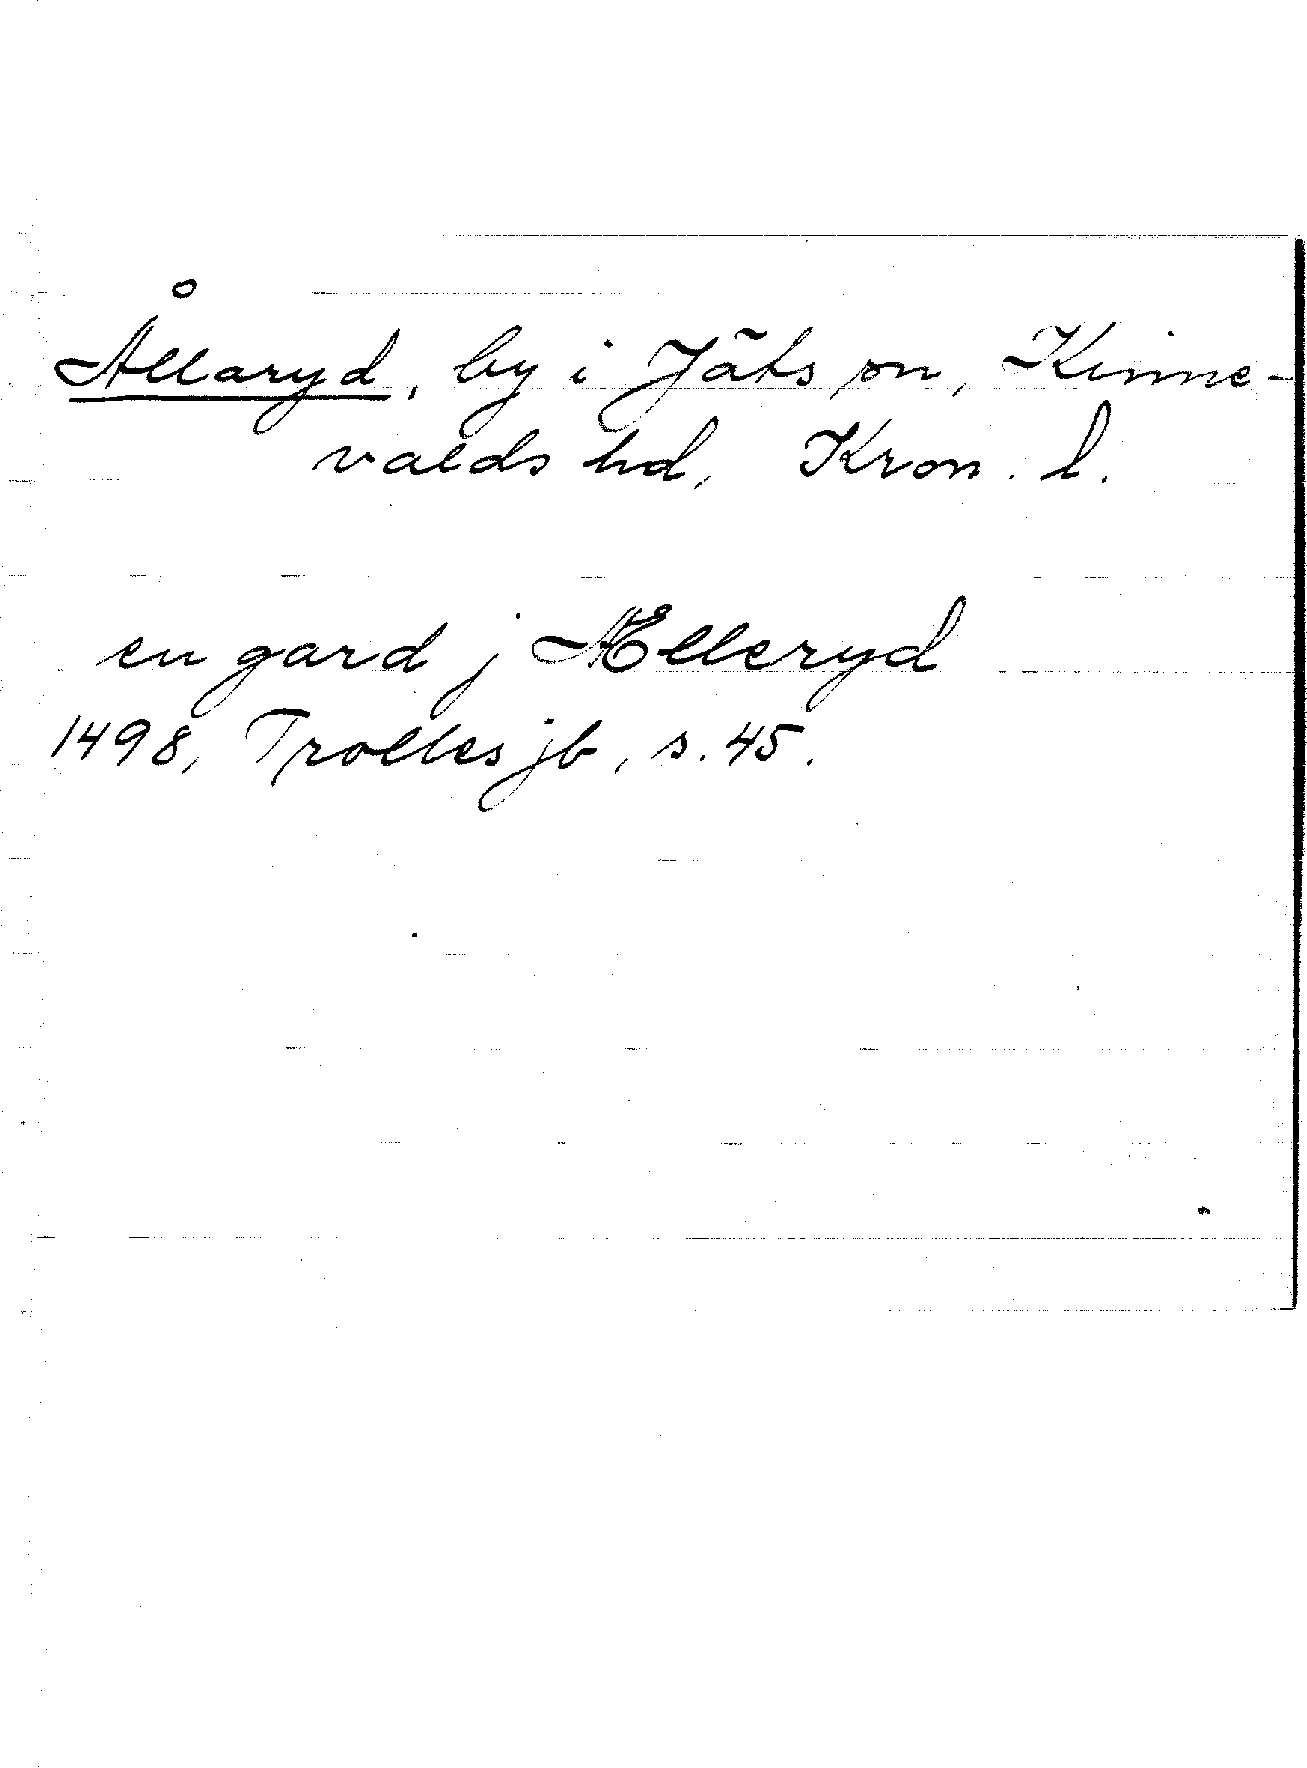 Ållaryd, by i Jäts sn, Kinne-
valds hd, Kron. l.
en gard j Ælleryd
1498, Trolles jb, s. 45.